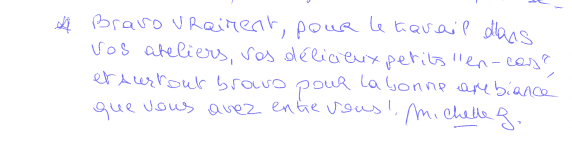 Bravo vraiment, pour le travail dans
vos ateliers, vos délicieux petits "en-cas",
et surtout bravo pour la bonne ambiance
que vous avez entre vous! Michelle G.